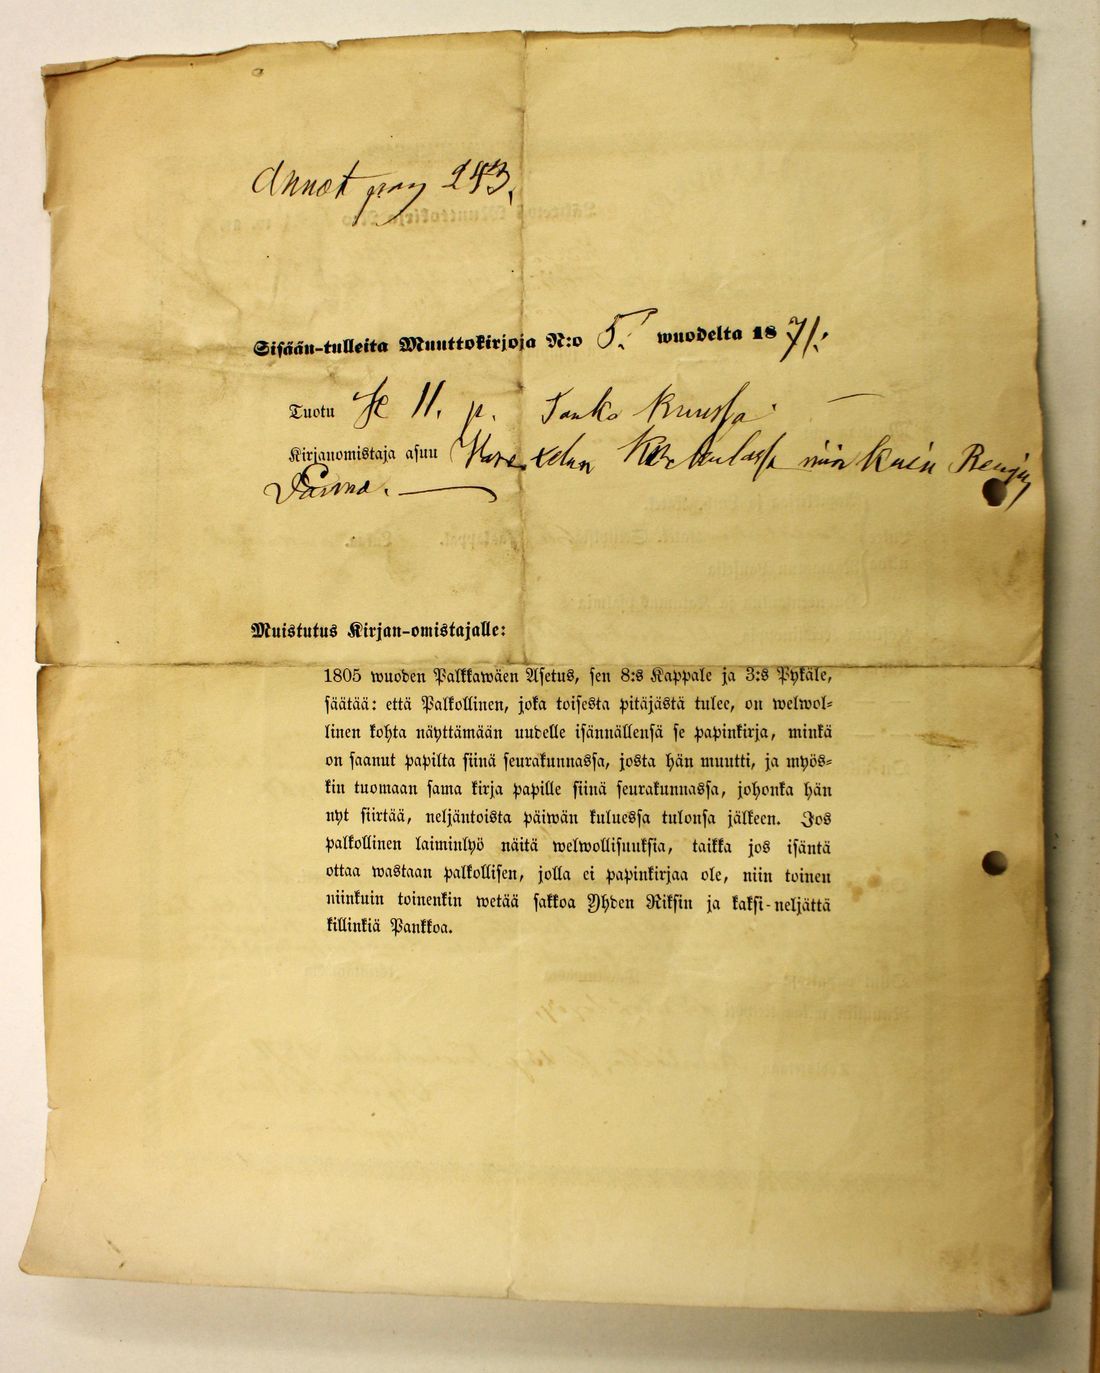 Annot pag 243.
Sisään-tulleita Muuttokirjoja N:o 5. wuodelta 1871.
Tuotu se 11. p. Touko kuussa
Kirjanomistaja asuu niin kuin Rengin
Waimo.
Muistutus Kirjan-omistajalle:
1805 wuoden Palkkawäen Asetus, sen 8:s Kappale ja 3:s Pykäle,
säätää: että Palkollinen, joka toisesta pitäjästä tulee, on welwol-
linen kohta näyttämään uudelle isännällensä se papinkirja, minkä
on saanut papilta siinä seurakunnassa, josta hän muutti, ja myös-
kin tuomaan sama kirja papille siinä seurakunnassa, johonka hän
nyt siirtää, neljäntoista päiwän kuluessa tulonsa jälkeen. Jos
palkollinen laiminlyö näitä welwollisuuksia, taikka jos isäntä
ottaa wastaan palkollisen, jolla ei papinkirjaa ole, niin toinen
niinkuin toinenkin wetää sakkoa Yhden Riksin ja kaksi-neljättä
killinkiä Pankkoa.